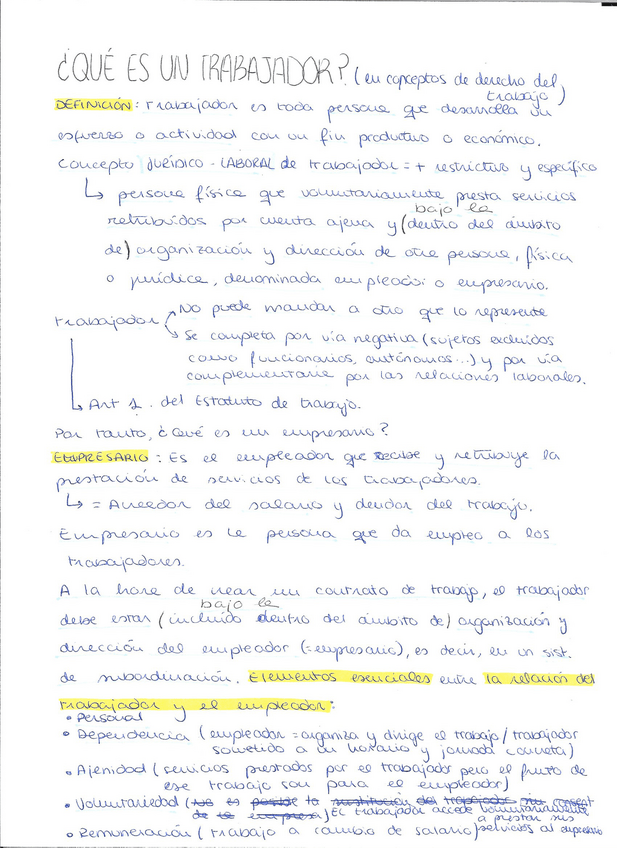 ¿QUÉ ES UN TRABAJADOR? (en conceptos de derecho del trabajo)
DEFINICIÓN: trabajador es toda persona que desarrolla un
esfuerzo o actividad con un fin productivo o económico.
Concepto JURÍDICO-LABORAL de trabajador = + restrictivo y específico
↳ persona física que voluntariamente presta servicios
bajo la
retribuidos por cuenta ajena y (dentro del ámbito
de) organización y dirección de otra persona, física
o jurídica, denominada empleador o empresario.
trabajador
No puede mandar a otro que lo represente
Se completa por vía negativa (sujetos excluidos
como funcionarios, autónomos...) y por vía
complementaria por las relaciones laborales.
↳ Art 1. del Estatuto de trabajo.
Por tanto, ¿Qué es un empresario?
EMPRESARIO: Es el empleador que recibe y retribuye la
prestación de servicios de los trabajadores.
↳ = Acreedor del salario y deudor del trabajo.
Empresario es la persona que da empleo a los
trabajadores.
A la hora de crear un contrato de trabajo, el trabajador
bajo la
debe estar (incluido dentro del ámbito de) organización y
dirección del empleador (=empresario), es decir, en un sist.
de subordinación. Elementos esenciales entre la relación del
trabajador y el empleador:
• Personal
• Dependencia (empleador = organiza y dirige el trabajo / trabajador
sometido a un horario y jornada concreta)
• Ajenidad (servicios prestados por el trabajador pero el fruto de
ese trabajo son para el empleador)
• Voluntariedad (no es posible la sustitución del trabajador sin consent
de la empresa) El trabajador accede voluntariamente
a prestar sus
servicios al empresario
• Remuneración (trabajo a cambio de salario)